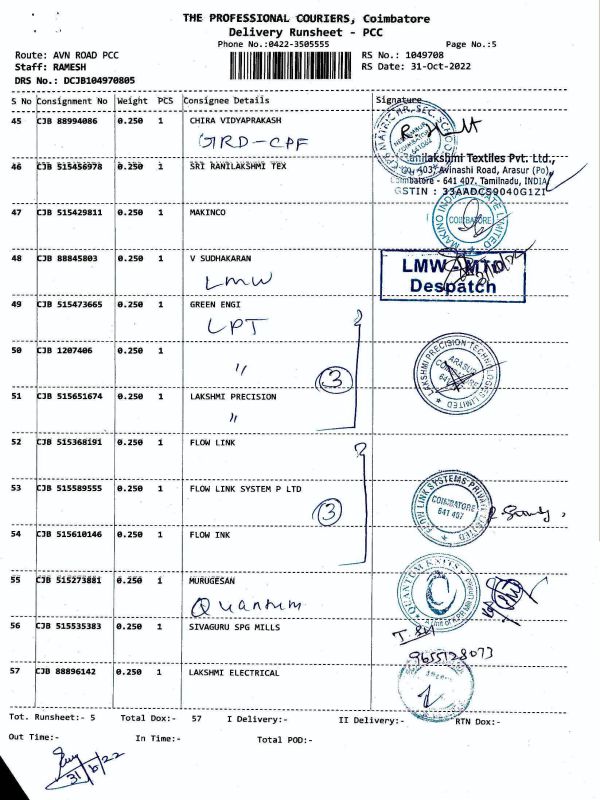 THE PROFESSIONAL COURIERS, Coimbatore
Delivery Runsheet - PCC
Phone No.:0422-3505555
Page No.:5
Route: AVN ROAD PCC
RS No.: 1049708
Staff: RAMESH
RS Date: 31-Oct-2022
DRS No.: DCJB104970805
S No Consignment No Weight PCS Consignee Details Signature
45 CJB 88994086 0.250 1 CHIRA VIDYAPRAKASH
GRD-CPF
46 CJB 515456978 0.250 1 SRI RANILAKSHMI TEX
Ranilakshmi Textiles Pvt. Ltd.,
403, Avinashi Road, Arasur (Po),
Coimbatore - 641 407. Tamilnadu, INDIA
GSTIN : 33AADCS9040G1ZI
47 CJB 515429811 0.250 1 MAKINCO
COIMBATORE
48 CJB 88845803 0.250 1 V SUDHAKARAN
LMW
LMW - MTD
Despatch
49 CJB 515473665 0.250 1 GREEN ENGI
LPT
50 CJB 1207406 0.250 1
"
3
LAKSHMI PRECISION TECHNOLOGIES LIMITED
ARASUR
COIMBATORE
51 CJB 515651674 0.250 1 LAKSHMI PRECISION
"
52 CJB 515368191 0.250 1 FLOW LINK
53 CJB 515589555 0.250 1 FLOW LINK SYSTEM P LTD
3
FLOW LINK SYSTEMS PRIVATE LIMITED
COIMBATORE
641 407
54 CJB 515610146 0.250 1 FLOW INK
55 CJB 515273881 0.250 1 MURUGESAN
Quantum
QUANTUM KNITS
56 CJB 515535383 0.250 1 SIVAGURU SPG MILLS
9655128073
57 CJB 88896142 0.250 1 LAKSHMI ELECTRICAL
Tot. Runsheet:- 5 Total Dox:- 57 I Delivery:- II Delivery:- RTN Dox:-
Out Time:- In Time:- Total POD:-